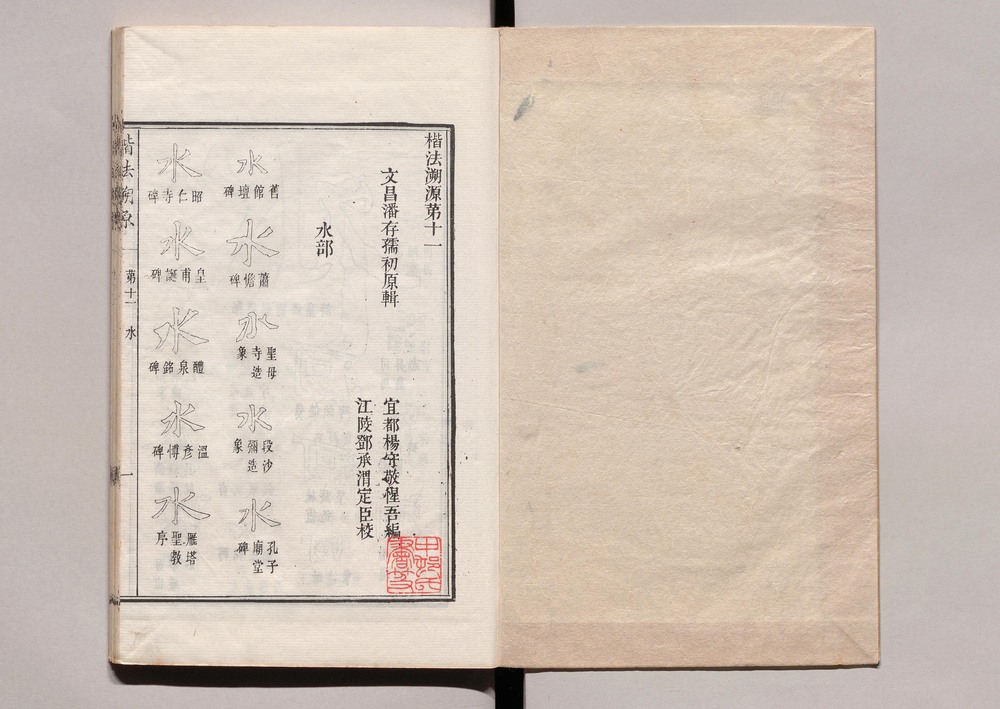 楷法溯源第十一
文昌潘存孺初原輯
宜都楊守敬惺吾編
江陵鄧承渭定臣校
水部
水
舊館壇碑
水
蕭憺碑
水
聖母寺造象
水
段沙彌造象
水
孔子廟堂碑
水
昭仁寺碑
水
皇甫誕碑
水
醴泉銘碑
水
溫彥博碑
水
雁塔聖教序
楷法溯源
第十一
水
一